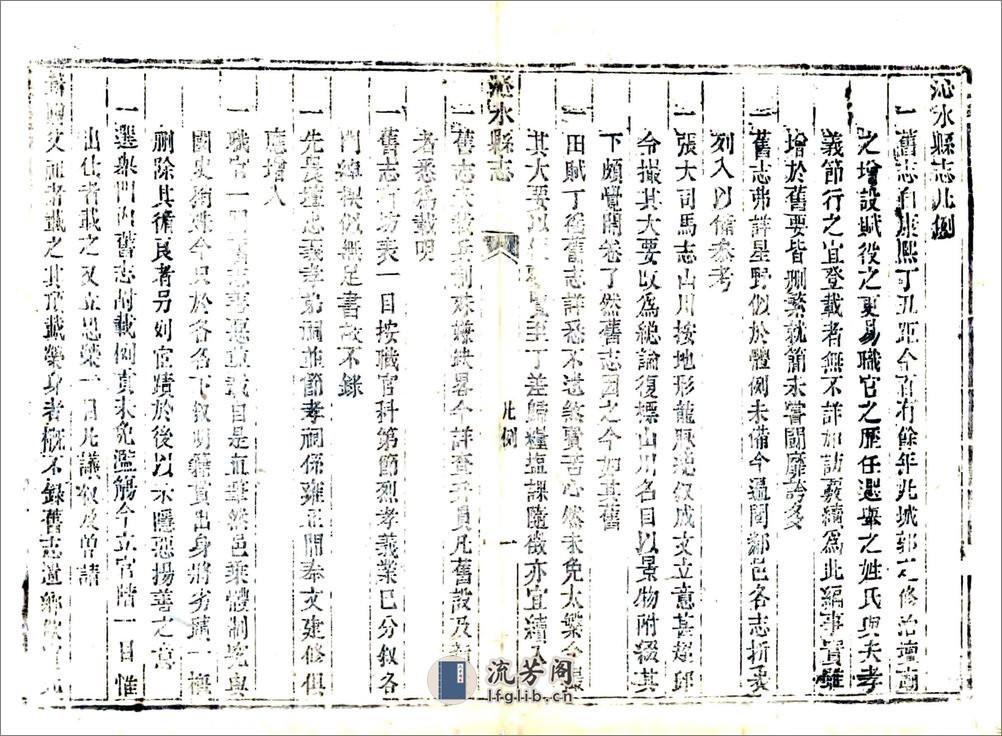 沁水縣志凡例
一舊志自康熙丁丑距今百有餘年凡城郭之修治壇廟
之增設賦役之更易職官之歷任選舉之姓氏與夫孝
義節行之宜登載者無不詳加訪覈續爲此編事實雖
增於舊要皆刪繁就簡未嘗鬭靡誇多
一舊志弗詳星野似於體例未備今遍閱鄰邑各志折衷
列入以備參考
一張大司馬志山川按地形龍脈總叙成文立意甚超邱
令撮其大要以爲總論復標山川名目以景物附綴其
下頗覺開卷了然舊志因之今如其舊
一田賦丁徭舊志詳悉不遺煞費苦心然未免太繁今
其大要以 至丁差歸糧塩課隨徵亦宜續入
沁水縣志
凡例
一
一舊志未載兵制殊嫌缺畧今詳查弁員凡舊設及新
者悉爲載明
一舊志有坊表一目按職官科第節烈孝義業已分叙各
門綽楔似無足書故不錄
一先農壇忠義孝弟祠並節孝祠係雍正間奉文建修俱
應增入
一職官一門舊志善惡並載自是直筆然邑乘體制究與
國史狥殊今只於各名下叙明籍貫出身將劣蹟一概
刪除其循良者另列宦蹟於後以示隱惡揚善之意
一選舉門內舊志封載例貢未免濫觴今立官階一目惟
出仕者載之又立恩榮一目凡議叙及曾請
封典文証者載之其頂戴榮身者概不錄舊志遺鄉飲
流芳阁
lfglib.cn